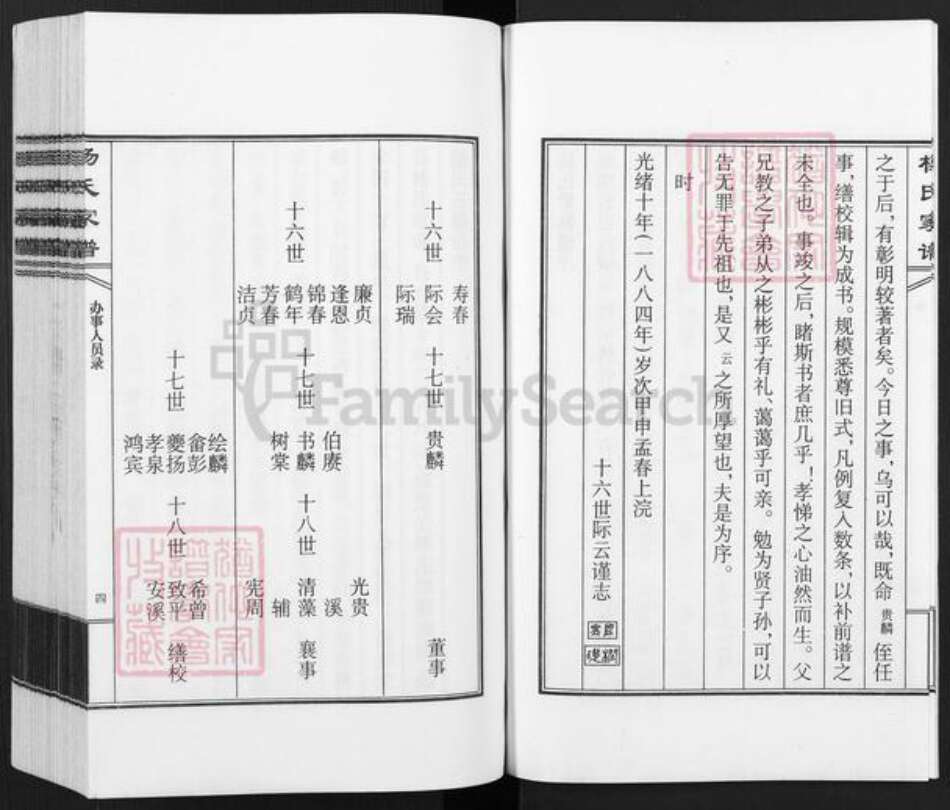 杨氏家谱
之于后，有彰明较著者矣。今日之事，乌可以哉，既命 贵麟 侄任
事，缮校辑为成书。规模悉尊旧式，凡例复入数条，以补前谱之
未全也。事竣之后，睹斯书者庶几乎！孝悌之心油然而生。父
兄教之子弟从之彬彬乎有礼、蔼蔼乎可亲。勉为贤子孙，可以
告无罪于先祖也，是又 云 之所厚望也，夫是为序。
时
光绪十年（一八八四年）岁次甲申孟春上浣
十六世际云谨志
十六世 寿春 际会 际瑞 十七世 贵麟 董事
十六世 廉贞 逢恩 锦春 鹤年 芳春 洁贞 十七世 伯赓 书麟 树棠 十八世 光贵 溪 清藻 辅 宪周 襄事
十七世 绘麟 畲彭 夔扬 孝泉 鸿宾 十八世 希曾 致平 安溪 缮校
杨氏家谱
办事人员录
四
FamilySearch